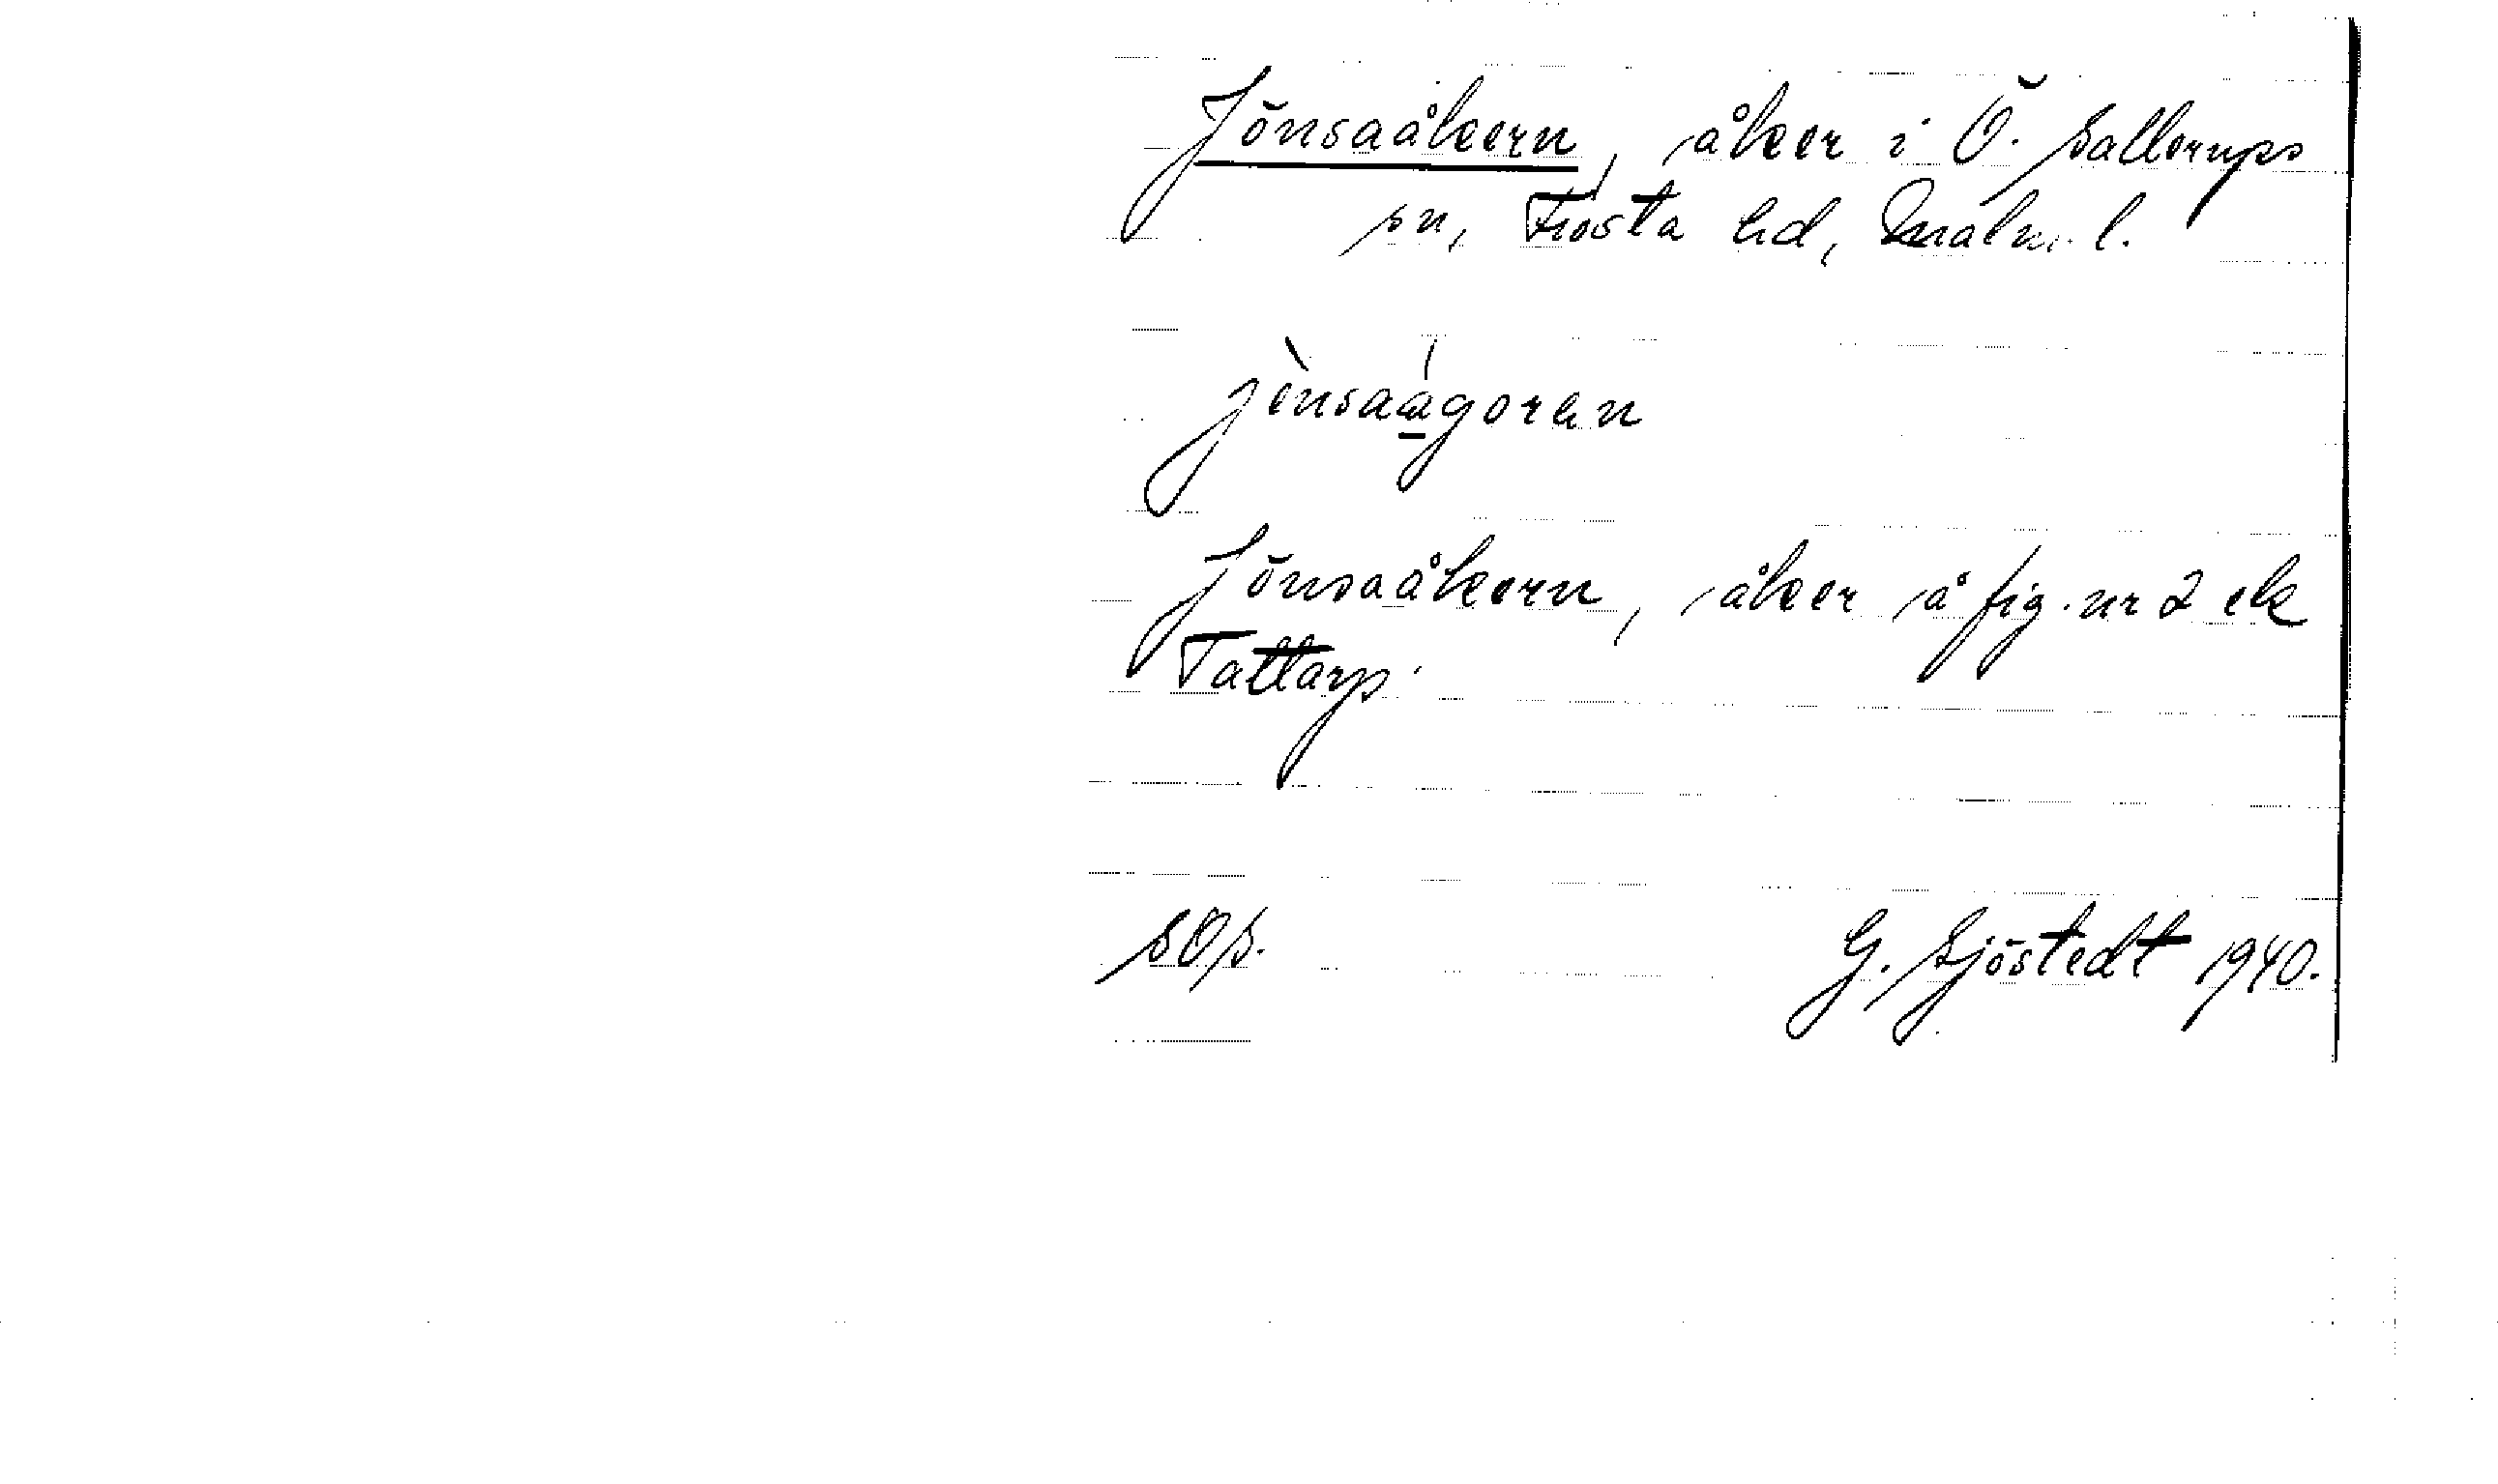 Jönsaåkern, åker i Ö. Sallerups
sn, Frosta hd, Malm. l.
jènsaágoran
Jönsaåkern, åker å fig. nr 2 ek
Tattarp.
SOß.
G. Sjöstedt 1940.